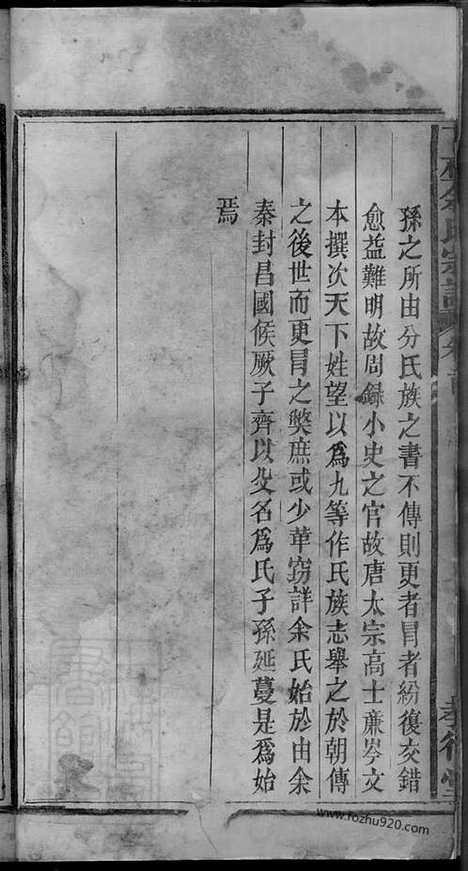 孫之所由分氏族之書不傳則更者冒者紛復交錯
愈益難明故周錄小史之官故唐太宗高士亷岑文
本撰次天下姓望以爲九等作氏族志舉之於朝傳
之後世而更冒之獘庶或少華窃詳余氏始於由余
秦封昌國候厥子齊以父名爲氏子孫延蔓是爲始
焉
余氏宗譜
孝
堂
www.fozhu920.com